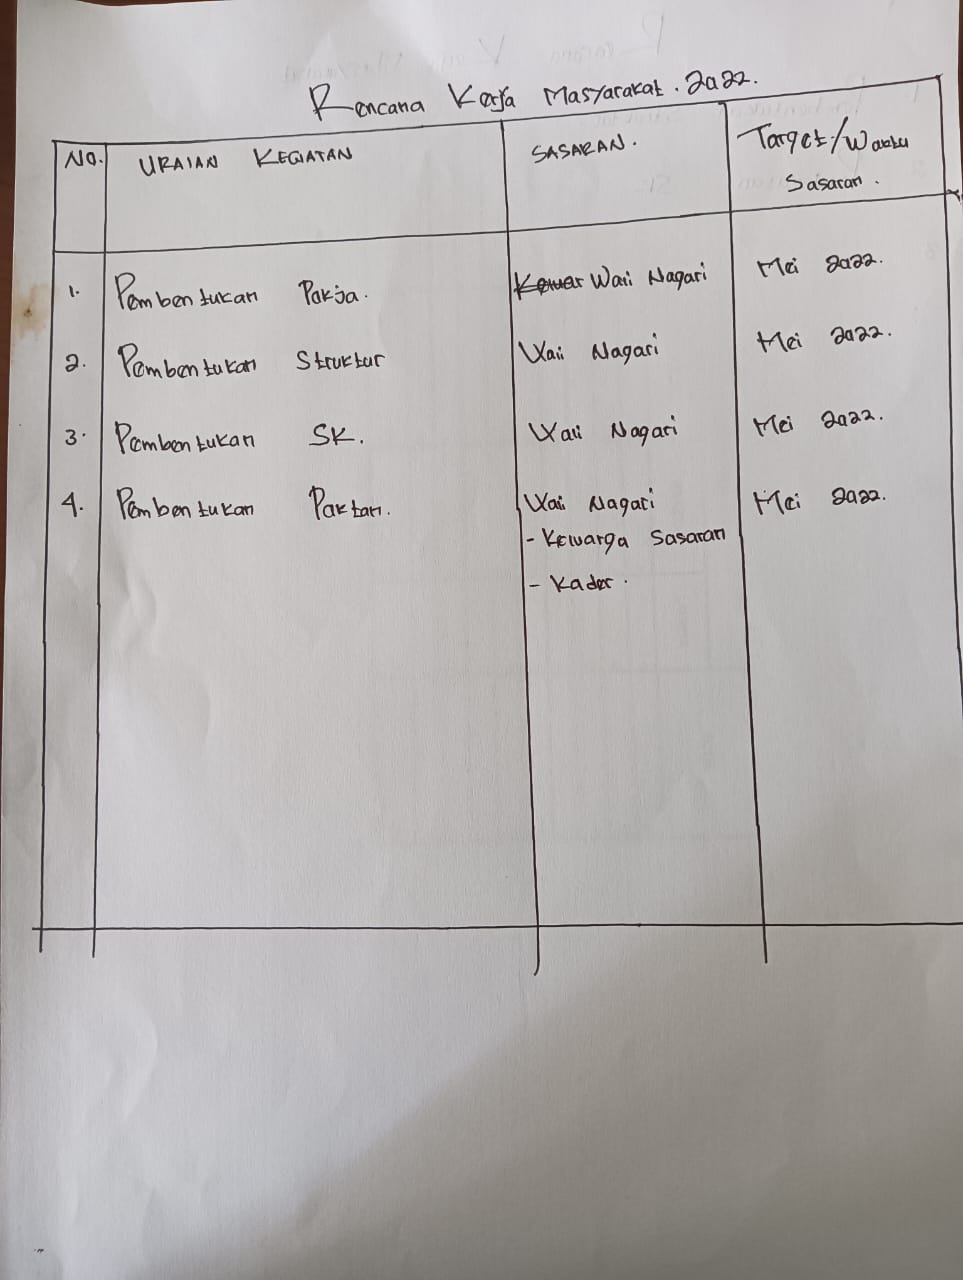 Rencana Kerja Masyarakat. 2022.
No. URAIAN KEGIATAN SASARAN. Target/Waktu
Sasaran.
1. Pembentukan Pokja. Wali Nagari Mei 2022.
2. Pembentukan Struktur Wali Nagari Mei 2022.
3. Pembentukan SK. Wali Nagari Mei 2022.
4. Pembentukan Poktan. Wali Nagari Mei 2022.
- Keluarga Sasaran
- Kader.